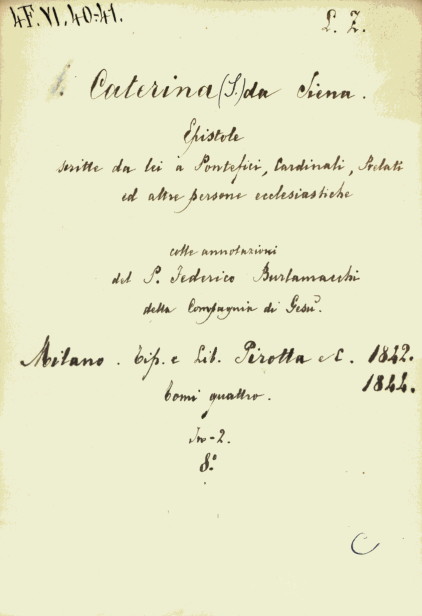 4F.VI.40-41.
L. Z.
Caterina (S.) da Siena.
Epistole
scritte da lei a Pontefici, Cardinali, Prelati
ed altre persone ecclesiastiche
colle annotazioni
del P. Federico Burlamacchi
della Compagnia di Gesù.
Milano. Tip. e Lit. Pirotta e C. 1842.
1844.
Tomi quattro.
In-2.
8.º
C